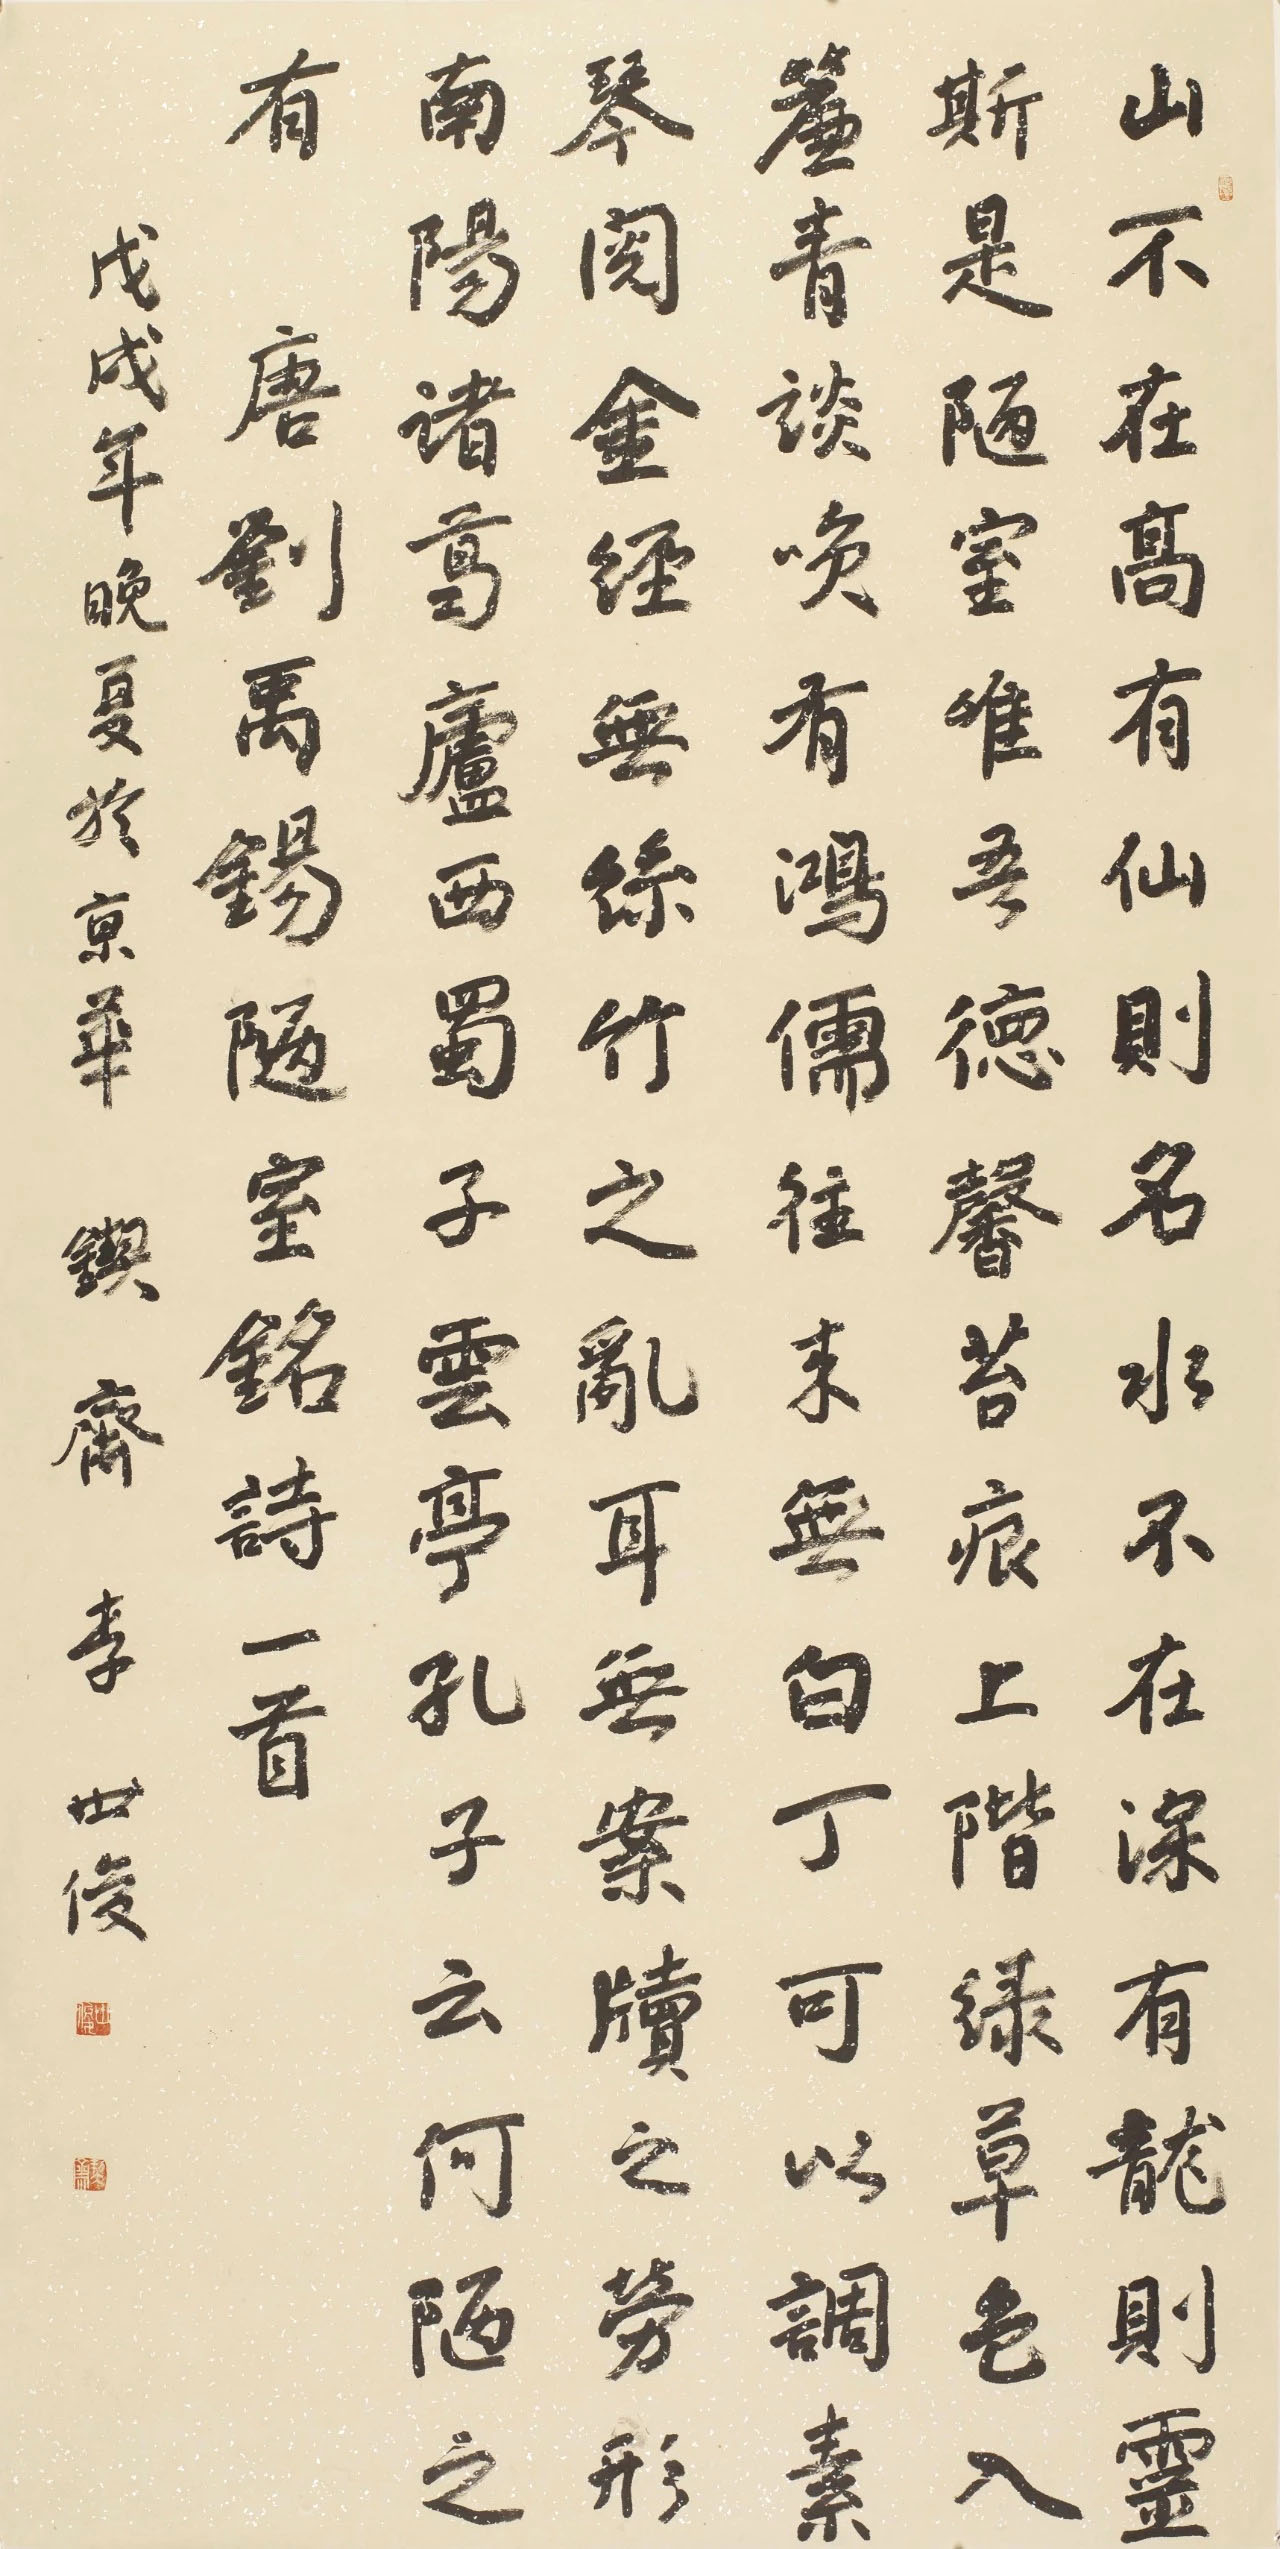 山不在高有仙則名水不在深有龍則靈
斯是陋室唯吾德馨苔痕上階緑草色入
簾青談咲有鴻儒往来無白丁可以調素
琴閲金經無絲竹之亂耳無案牘之勞形
南陽諸葛廬西蜀子雲亭孔子云何陋之
有 唐劉禹錫陋室銘詩一首
戊戌年晚夏於京華 鍥齋 李世俊
世俊